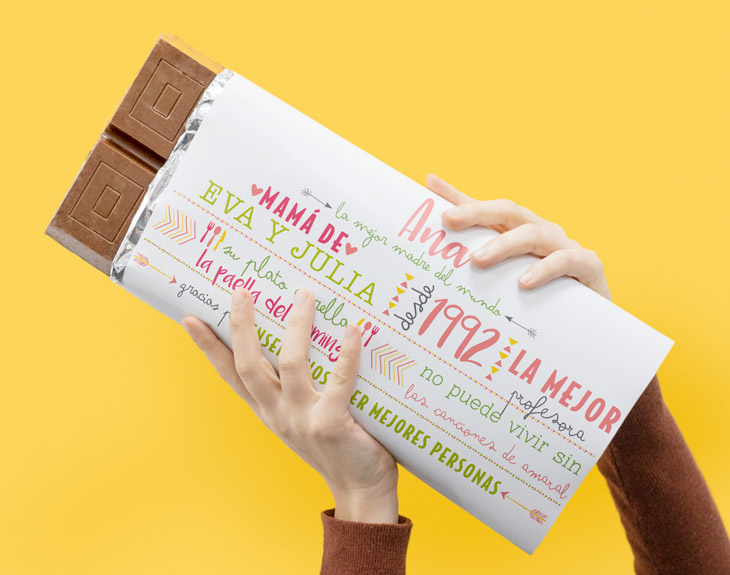 Ana
la mejor madre del mundo
MAMÁ DE
EVA Y JULIA
desde
1992
LA MEJOR
profesora
su plato
la paella del
no puede vivir sin
las canciones de amaral
gracias
MEJORES PERSONAS